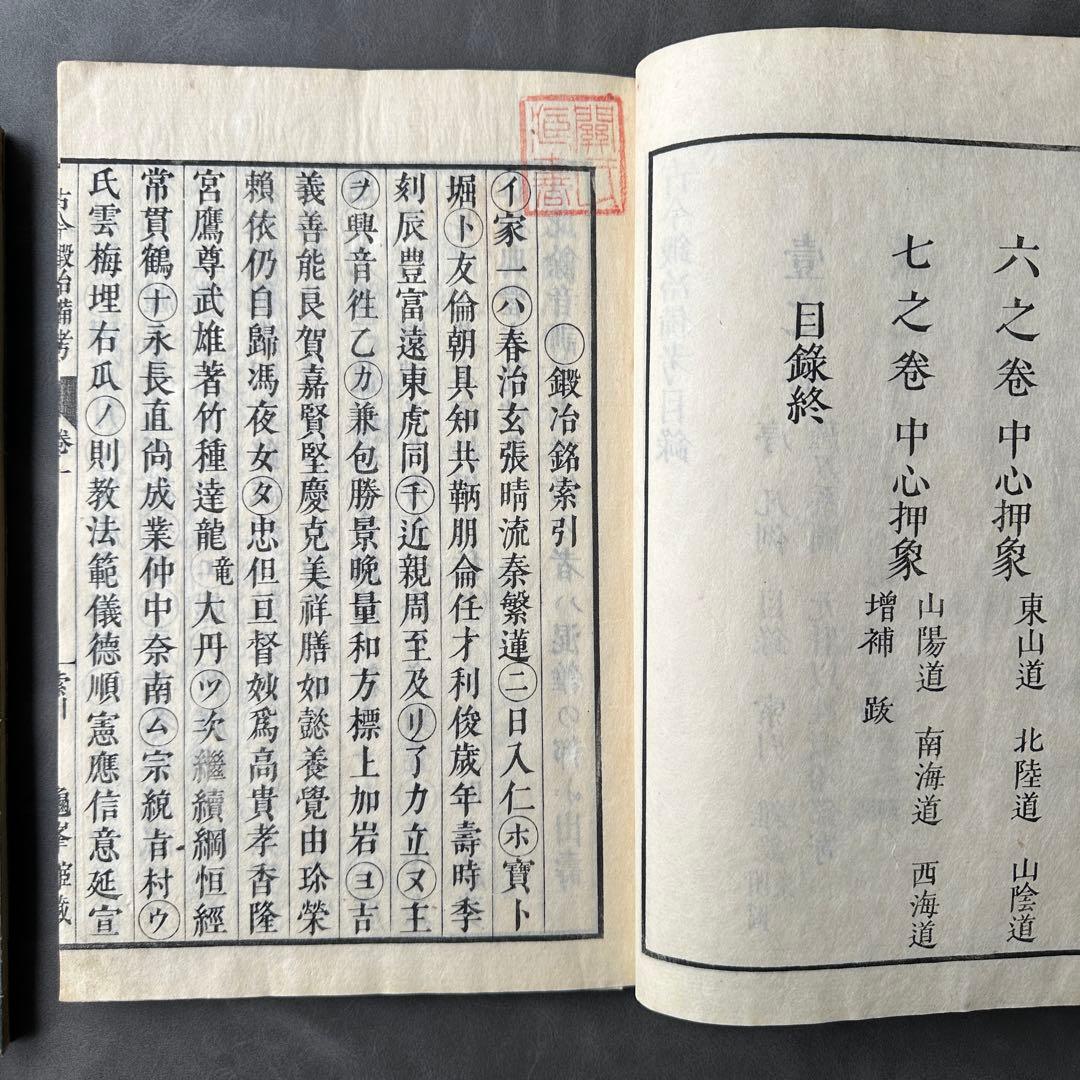 六之卷 中心押象 東山道 北陸道 山陰道
七之卷 中心押象 山陽道 南海道 西海道
增補 跋
目錄終
○鍛冶銘索引
㋑家一㋩春治玄張晴流秦繁蓮㊁日入仁㋭寶卜
堀㋣友倫朝具知共鞆朋侖任才利俊歲年壽時季
刻辰豊富遠東虎同㋠近親周至及㋷了力立㋦主
㋾興音徃乙㋕兼包勝景晩量和方標上加岩㋵吉
義善能良賀嘉賢堅慶克美祥膳如懿養覺由珎榮
賴依仍自歸馮夜女㋟忠但亘督妙爲高貴孝香隆
宮鷹尊武雄著竹種達龍竜 大丹㋡次繼續綱恒經
常貫鶴㊉永長直尙成業仲中奈南㋰宗統㫖村㋒
氏雲梅埋右瓜㋨則教法範儀德順憲應信意延宣
古今鍛冶備考 卷一 索引